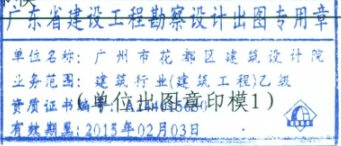 广东省建设工程勘察设计出图专用章
单位名称：广州市花都区建筑设计院
业务范围：建筑行业(建筑工程)乙级
资质证书编号：
（单位出图章印模1）
有效期至：2015年02月03日